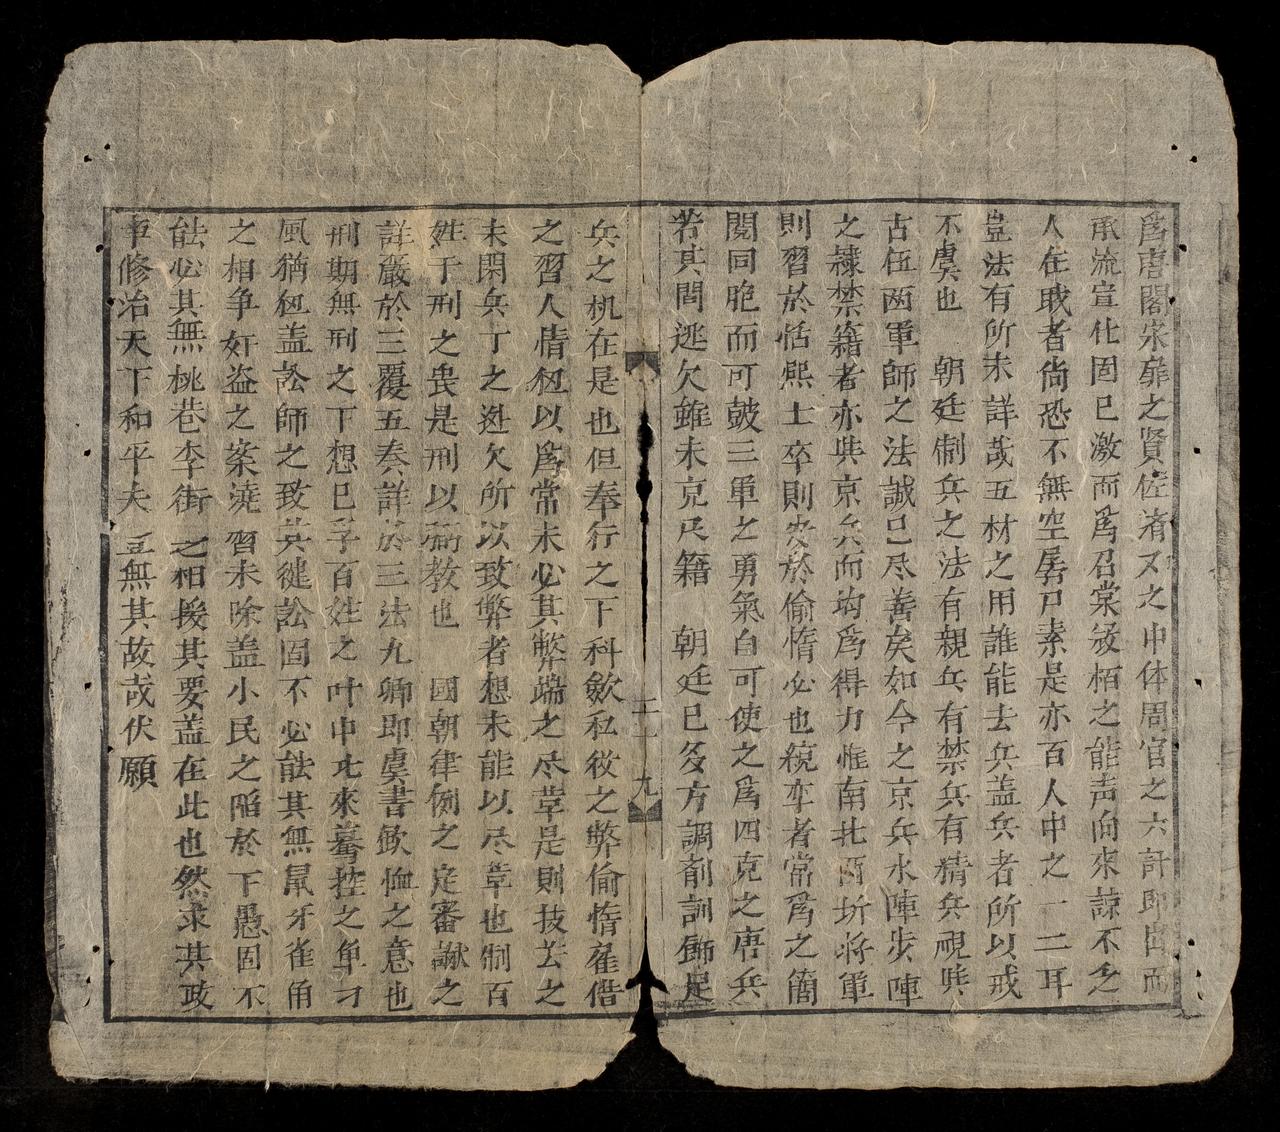 爲唐閣宋扉之賢佐者又之中体周官之六計即由而
承流宣化固已激而爲召棠稜栢之能声向來諒不乏
人在戝者尙恐不無空孱尸素是亦百人中之一二耳
豈法有所未詳哉五材之用誰能去兵盖兵者所以戒
不虞也　朝廷制兵之法有親兵有禁兵有精兵視眹
古伍兩軍師之法誠已尽善矣如今之京兵水陣步陣
之隷禁籍者亦眹京兵而均爲得力惟南北西圻將軍
則習於恬熙士卒則安於偷惰必也統率者常爲之簡
閱同胞而可皷三軍之勇氣自可使之爲四克之唐兵
若其間逃欠雖未克尺籍　朝廷已多方調劑訓飾足
兵之机在是也但奉行之下科歛私役之弊偷惰雇借
之習人情狃以爲常未必其弊端之尽革是則技芸之
未閑兵丁之迯欠所以致弊者想未能以尽革也制百
姓于刑之衷是刑以弼教也　國朝律例之定審讞之
詳嚴於三覆五奏詳於三法九卿即虞書欽恤之意也
刑期無刑之下想已孚百姓之叶中北來驀控之单刁
風猶狃盖訟師之致英健訟固不必能其無鼠牙雀角
之相争奸盗之案澆習未除盖小民之陷於下愚固不
能必其無桃巷李街之相援其要盖在此也然求其政
事修治天下和平夫豈無其故哉伏願
二十九